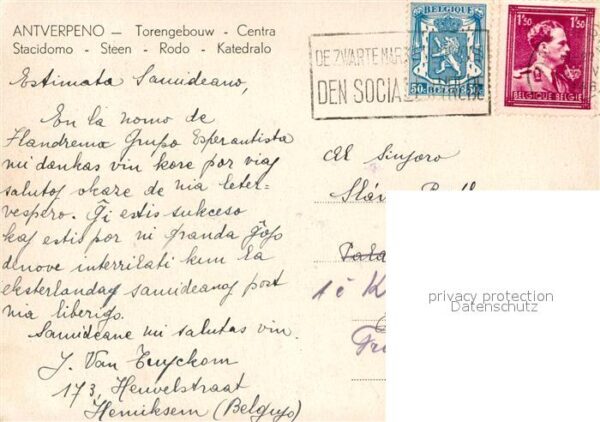 ANTVERPENO — Torengebouw - Centra
Stacidomo - Steen - Rodo - Katedralo
Estimata Samideano,
En la nomo de
Flandrema Grupo Esperantista
mi dankas vin kore por viaj
salutoj okaze de nia leter-
vespero. Ĝi estis sukceso
kaj estis por ni granda ĝojo
denove interrilati kun la
eksterlandaj samideanoj post
nia liberigo.
Samideane mi salutas vin.
J. Van
173, Heuvelstraat
Hemiksem (Belgujo)
BELGIQUE
50c BELGIE 50c
1F50 1F50
BELGIQUE BELGIE
DE ZWARTE MAR
DEN SOCIA
Al sinjoro
1 č K
privacy protection
Datenschutz